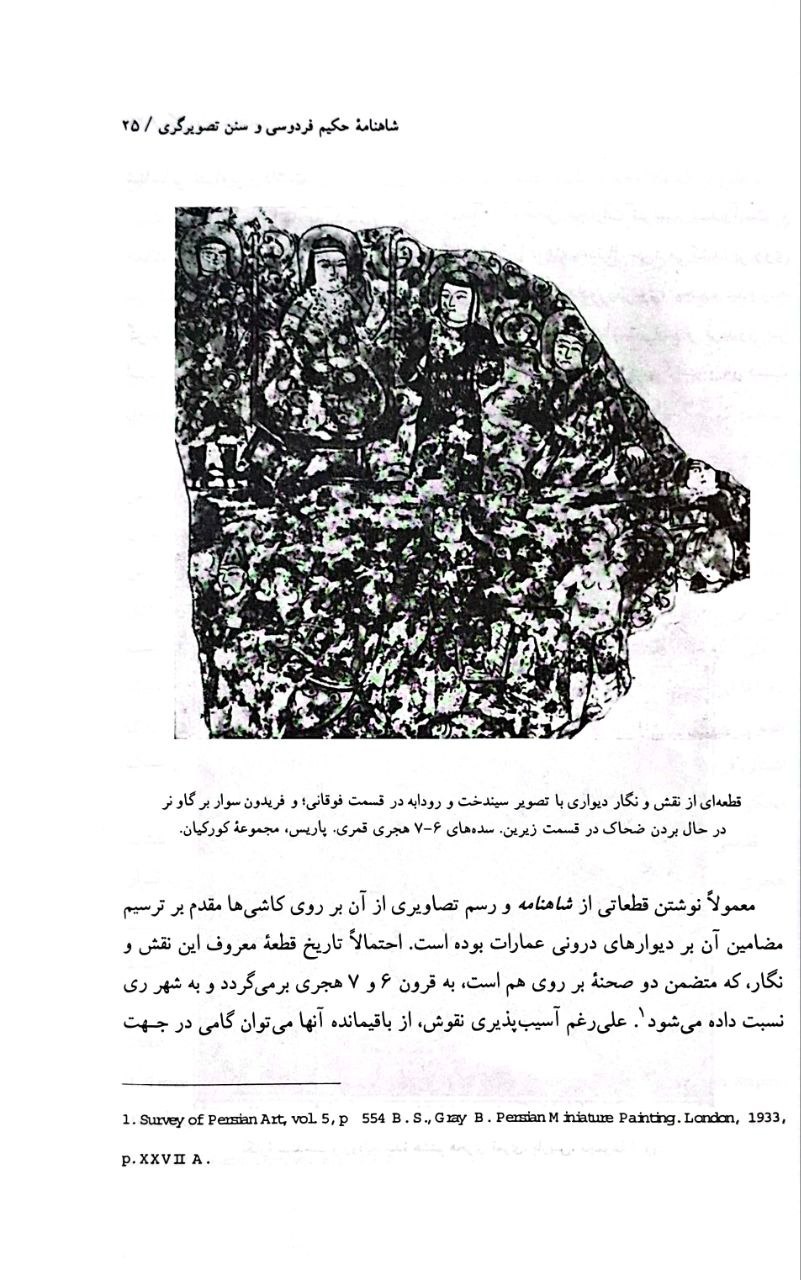 شاهنامهٔ حکیم فردوسی و سنن تصویرگری / ۲۵
قطعه‌ای از نقش و نگار دیواری با تصویر سیندخت و رودابه در قسمت فوقانی؛ و فریدون سوار بر گاو نر
در حال بردن ضحاک در قسمت زیرین. سده‌های ۶-۷ هجری قمری. پاریس، مجموعهٔ کورکیان.
معمولاً نوشتن قطعاتی از شاهنامه و رسم تصاویری از آن بر روی کاشی‌ها مقدم بر ترسیم
مضامین آن بر دیوارهای درونی عمارات بوده است. احتمالاً تاریخ قطعهٔ معروف این نقش و
نگار، که متضمن دو صحنهٔ بر روی هم است، به قرون ۶ و ۷ هجری برمی‌گردد و به شهر ری
نسبت داده می‌شود۱. علی‌رغم آسیب‌پذیری نقوش، از باقیمانده آنها می‌توان گامی در جهت
1. Survey of Persian Art, vol. 5, p 554 B. S., Gray B. Persian Miniature Painting. London, 1933,
p. XXVII A.